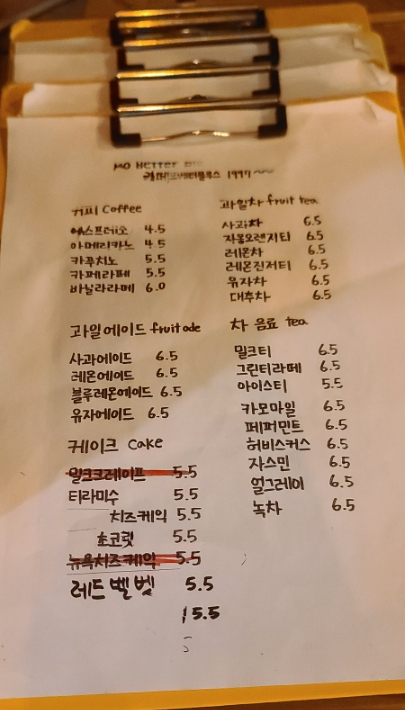 MO BETTER
1997
커피 Coffee
에스프레소 4.5
아메리카노 4.5
카푸치노 5.5
카페라떼 5.5
바닐라라떼 6.0
과일차 fruit tea
사과차 6.5
자몽오렌지티 6.5
레몬차 6.5
레몬진저티 6.5
유자차 6.5
대추차 6.5
과일에이드 fruit ade
사과에이드 6.5
레몬에이드 6.5
블루레몬에이드 6.5
유자에이드 6.5
차 음료 tea
밀크티 6.5
그린티라떼 6.5
아이스티 5.5
카모마일 6.5
페퍼민트 6.5
허비스커스 6.5
자스민 6.5
얼그레이 6.5
녹차 6.5
케이크 Cake
밀크크레이프 5.5
티라미수 5.5
치즈케익 5.5
초코릿 5.5
뉴욕치즈케익 5.5
레드벨벳 5.5
15.5